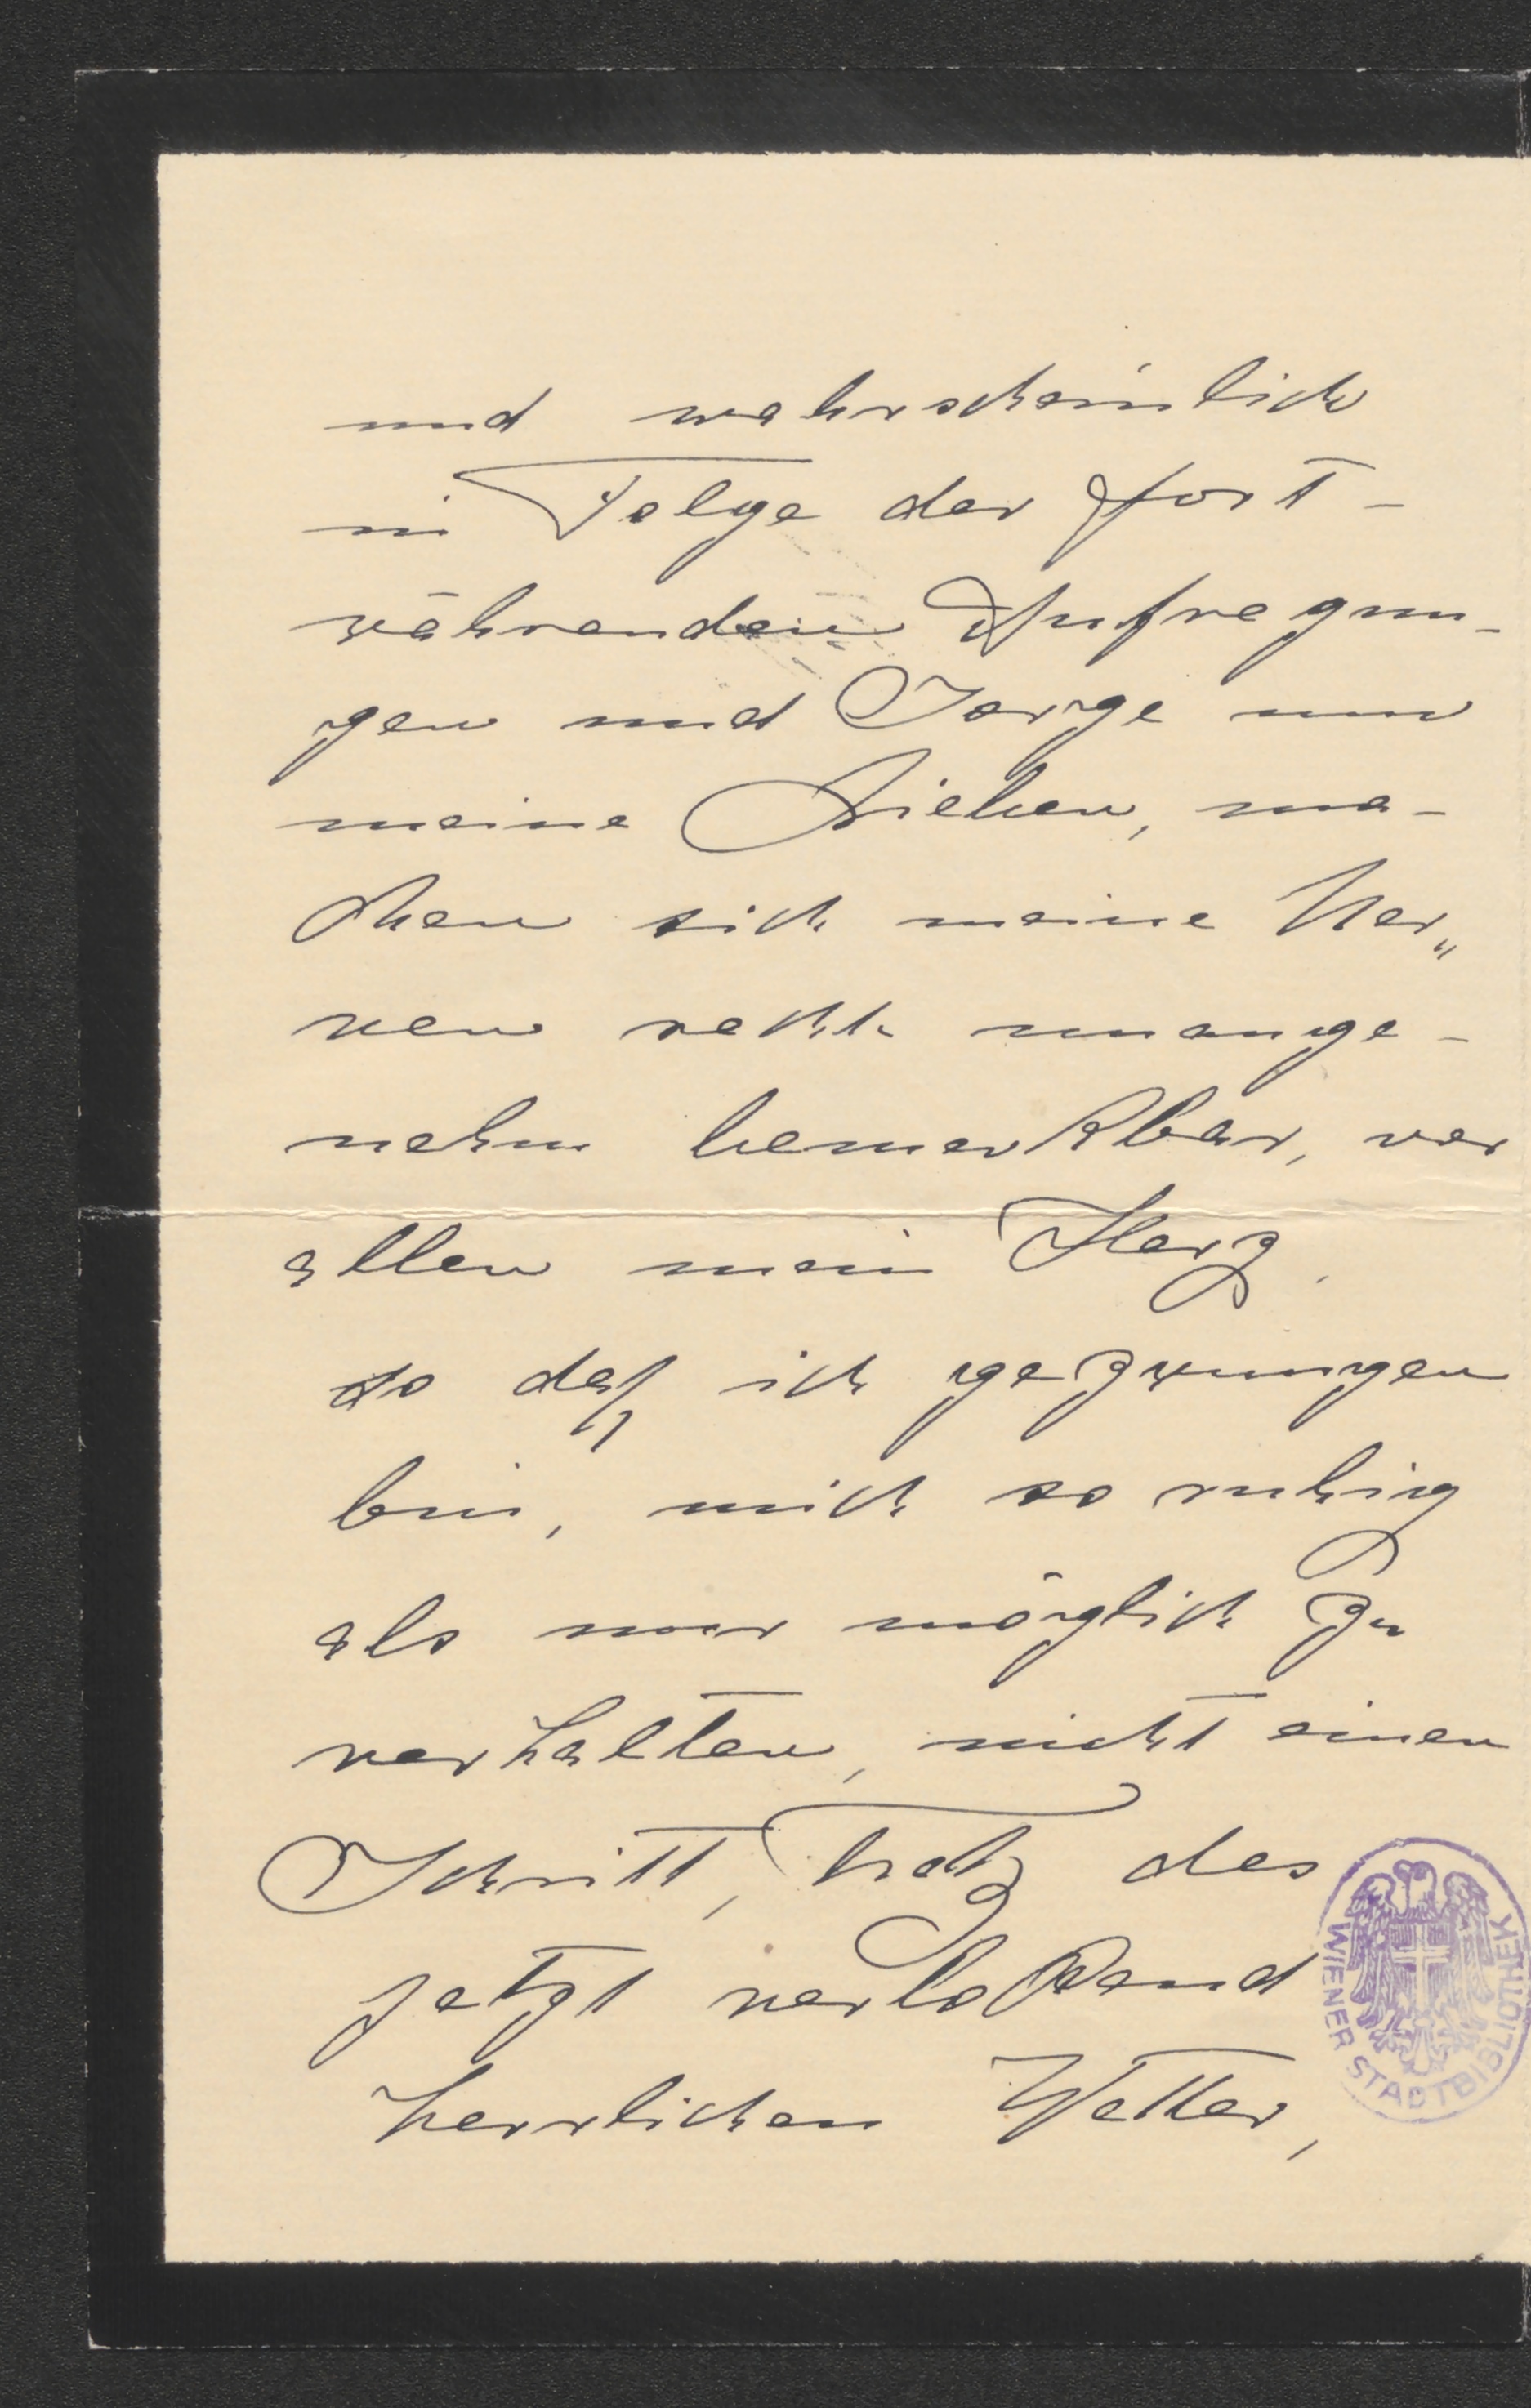 und wahrscheinlich
in Folge der fort-
währenden Aufregun-
gen und Sorge um
meine Lieben, ma-
chen sich meine Ner„
ven recht unange-
nehm bemerkbar, vor
allen mein Herz,
so daß ich gezwungen
bin, mich so ruhig
als nur möglich zu
verhalten, nicht einen
Schritt, trotz des
jetzt verlokend
herrlichen Wetter,
WIENER STADTBIBLIOTHEK